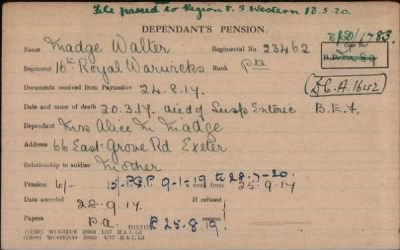 File passed to Region 8. S. Western 18.5.20.
DEPENDANT'S PENSION.
8/D/1783.
Name Madge Walter Regimental No. 23462
Regiment 16th Royal Warwicks Rank Pte
Documents received from Paymaster 24.8.17. D.C.A 1642
Date and cause of death 20.3.17. died of Susp Enteric B.E.F.
Dependant Mrs Alice M Madge
Address 66 East Grove Rd Exeter
Relationship to soldier Mother
Pension 6/- from 25.9.17
9-1-19 to 28-7-20.
Date awarded 28.9.17. If refused
Papers P.a. 25.8.19.